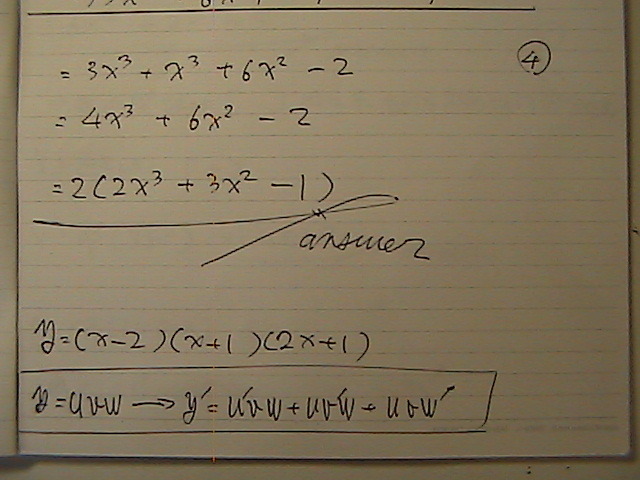 = 3x³ + x³ + 6x² - 2
④
= 4x³ + 6x² - 2
= 2(2x³ + 3x² - 1)
answer
y=(x-2)(x+1)(2x+1)
y=uvw → y'= u'vw + uv'w + uvw'